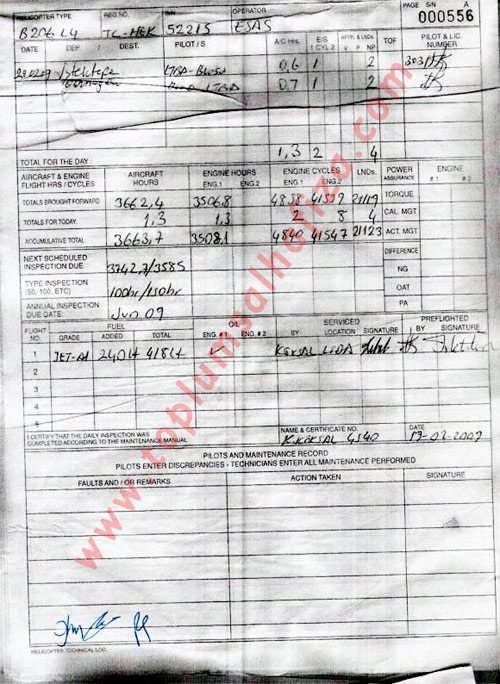 HELICOPTER TYPE REG.NO. S/N OPERATOR PAGE S/N A
B206 L4 TC-HEK 52215 ESAS 000556
DATE DEP / DEST. PILOT/S A/C Hrs. E/S CYL APPR. & LNDs. TOF PILOT & LIC. NUMBER
1 2 V P NP
LTBA- 0,6 1 2
LTBA 0.7 1 2
TOTAL FOR THE DAY: 1,3 2 4
AIRCRAFT & ENGINE FLIGHT HRS / CYCLES AIRCRAFT HOURS ENGINE HOURS ENG. 1 ENG. 2 ENGINE CYCLES ENG. 1 ENG. 2 LNDs. POWER ASSURANCE ENGINE # 1 # 2
TOTALS BROUGHT FORWARD 3662,4 3506,8 4838 41539 21119 TORQUE
TOTALS FOR TODAY. 1.3 1.3 2 8 4 CAL. MGT
ACCUMULATIVE TOTAL 3663,7 3508,1 4840 41547 21123 ACT. MGT
DIFFERENCE
NEXT SCHEDULED INSPECTION DUE 3742,7/3585
NG
TYPE INSPECTION (50, 100, ETC) 100hr/150hr
OAT
ANNUAL INSPECTION DUE DATE: Jun 09
PA
FLIGHT NO. FUEL OIL SERVICED PREFLIGHTED
GRADE ADDED TOTAL ENG. # 1 ENG. # 2 BY LOCATION SIGNATURE BY SIGNATURE
1 JET-A1 240Lt 418Lt ✓ KÖKSAL LTBA
2
3
4
5
I CERTIFY THAT THE DAILY INSPECTION WAS COMPLETED ACCORDING TO THE MAINTENANCE MANUAL
NAME & CERTIFICATE NO. DATE
K.KÖKSAL 4540
PILOTS AND MAINTENANCE RECORD
PILOTS ENTER DISCREPANCIES - TECHNICIANS ENTER ALL MAINTENANCE PERFORMED
FAULTS AND / OR REMARKS ACTION TAKEN SIGNATURE
HELICOPTER TECHNICAL LOG
www.toplumsalhafiza.com